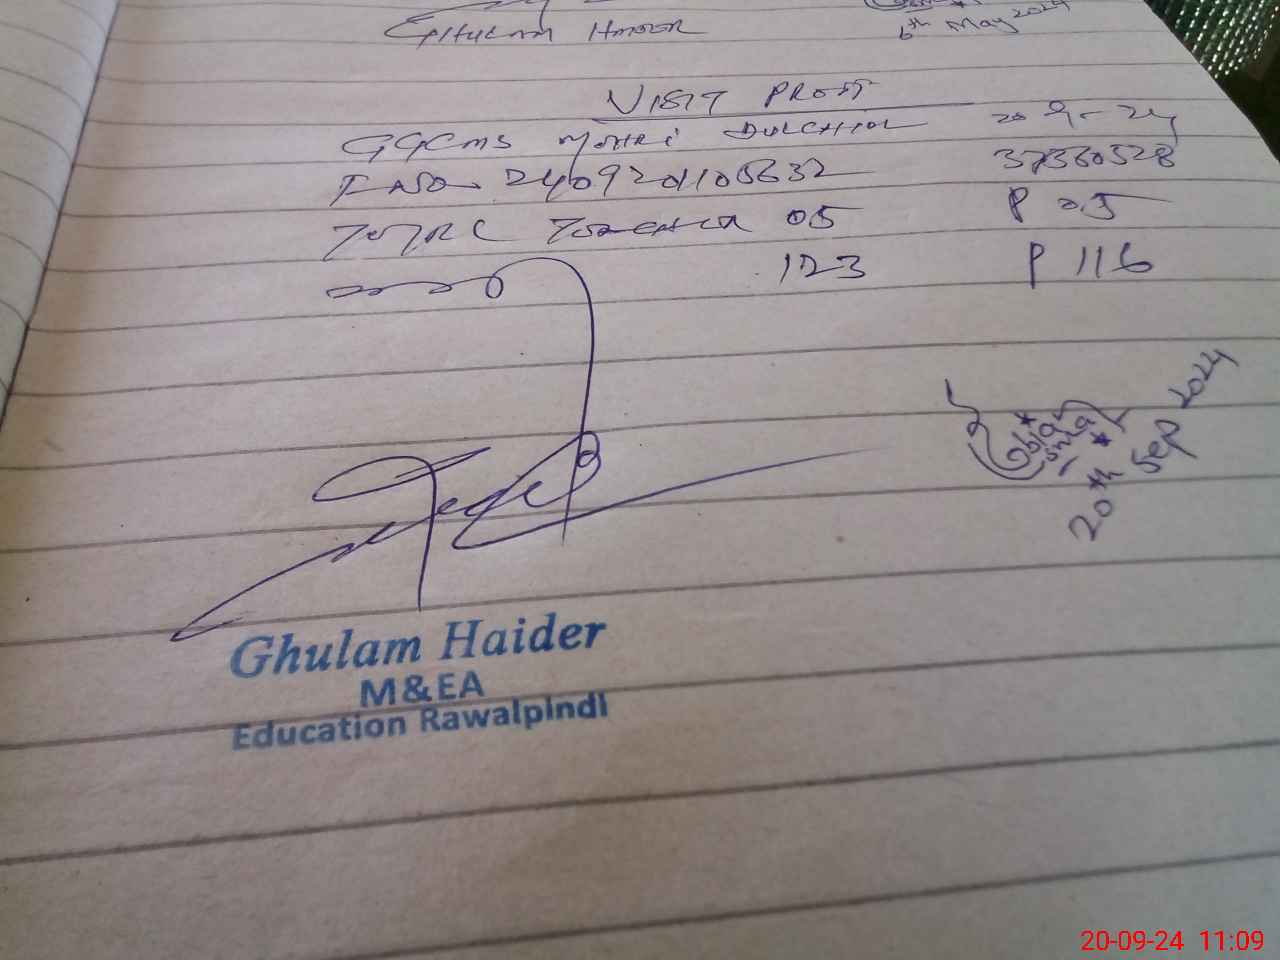 Ghulam Haider
6th May 2024
VISIT PROFF
GGCMS MOHRI 20-9-24
2409201105632 37360528
TOTAL TEACHER 05 P 05
123 P 116
20th Sep 2024
Ghulam Haider
M&EA
Education Rawalpindi
20-09-24 11:09